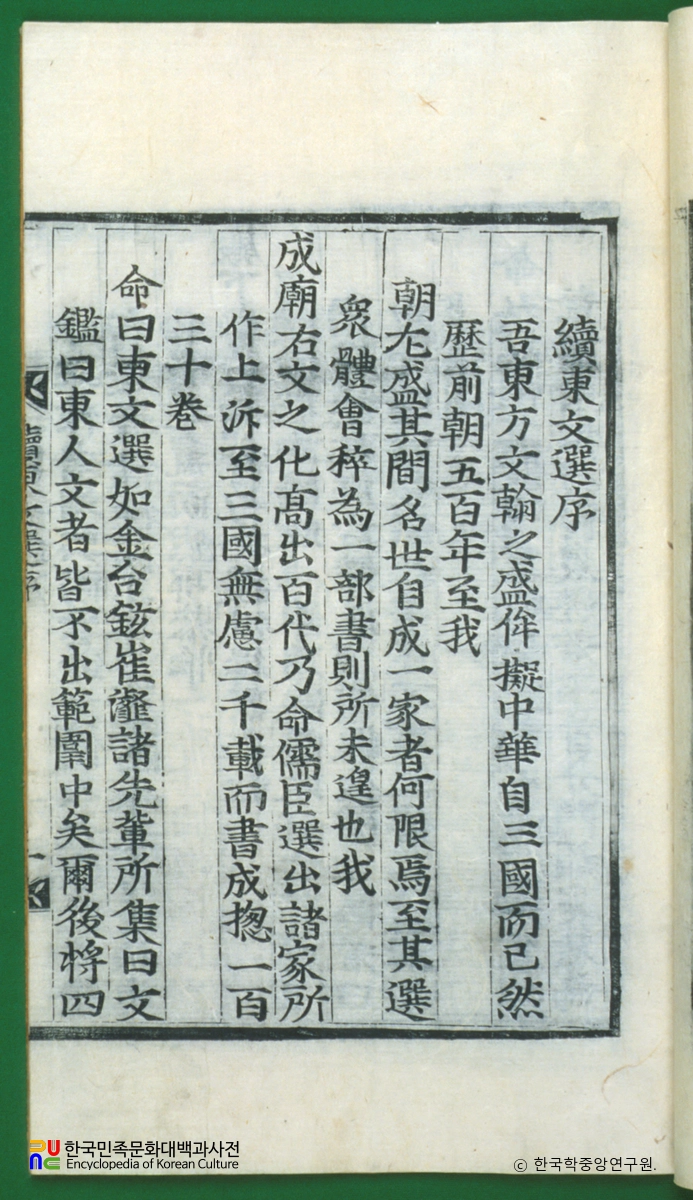 續東文選序
吾東方文翰之盛侔擬中華自三國而已然
歷前朝五百年至我
朝尤盛其間名世自成一家者何限焉至其選
衆體會稡為一部書則所未遑也我
成廟右文之化高出百代乃命儒臣選出諸家所
作上泝至三國無慮二千載而書成摠一百
三十卷
命曰東文選如金台鉉崔瀣諸先軰所集曰文
鑑曰東人文者皆不出範圍中矣爾後將四
한국민족문화대백과사전
Encyclopedia of Korean Culture
© 한국학중앙연구원.